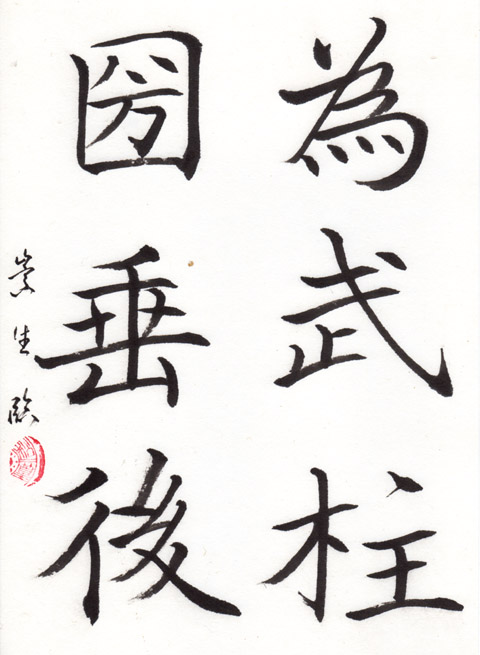 為武柱
圀垂後
崇生臨